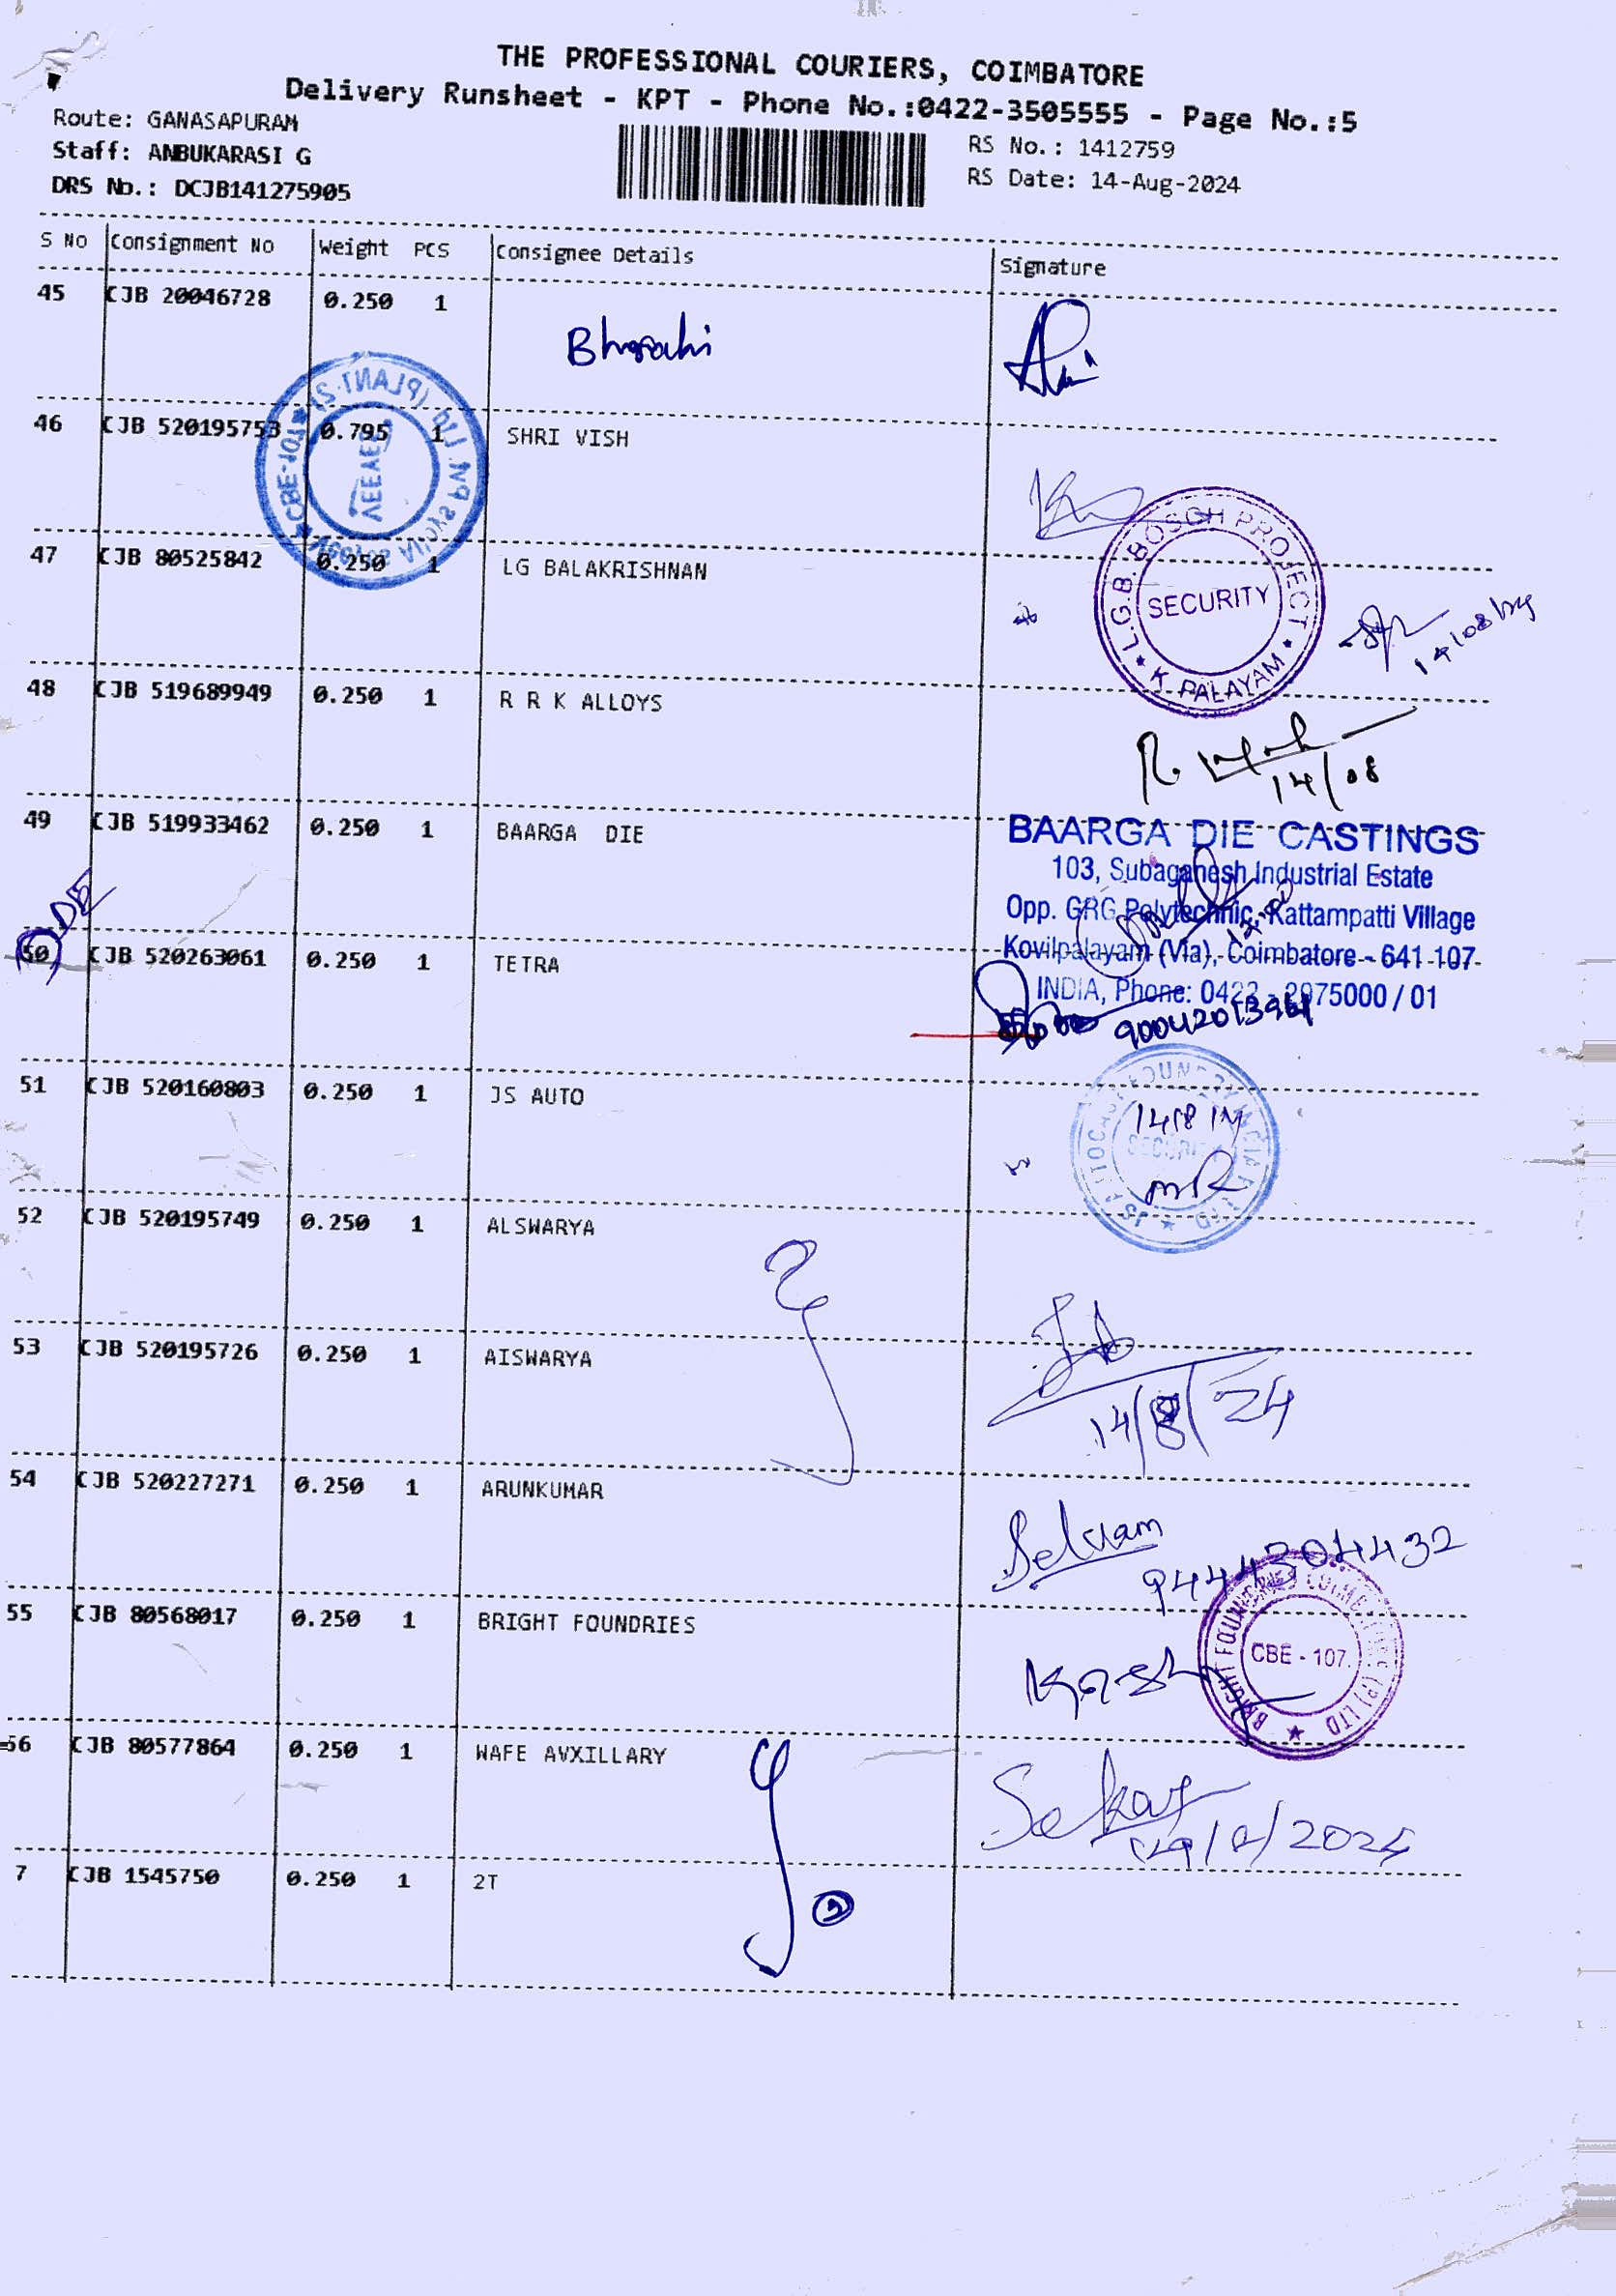 THE PROFESSIONAL COURIERS, COIMBATORE
Delivery Runsheet - KPT - Phone No.:0422-3505555 - Page No.:5
Route: GANASAPURAM
Staff: ANBUKARASI G
DRS No.: DCJB141275905
RS No.: 1412759
RS Date: 14-Aug-2024
S No Consignment No Weight PCS Consignee Details Signature
45 CJB 20046728 0.250 1
46 CJB 520195753 0.795 1 SHRI VISH
47 CJB 80525842 0.250 1 LG BALAKRISHNAN
L.G.B. BOSCH PROJECT
SECURITY
K PALAYAM
48 CJB 519689949 0.250 1 R R K ALLOYS
14/08
49 CJB 519933462 0.250 1 BAARGA DIE
BAARGA DIE CASTINGS
103, Subaganesh Industrial Estate
Opp. GRG Polytechnic, Kattampatti Village
Kovilpalayam (Via), Coimbatore - 641 107
INDIA, Phone: 0422 - 2975000 / 01
50 CJB 520263061 0.250 1 TETRA
51 CJB 520160803 0.250 1 JS AUTO
SECURITY
52 CJB 520195749 0.250 1 ALSWARYA
53 CJB 520195726 0.250 1 AISWARYA
14/8/24
54 CJB 520227271 0.250 1 ARUNKUMAR
Selvam
9444304432
55 CJB 80568017 0.250 1 BRIGHT FOUNDRIES
BRIGHT FOUNDRIES COIMBATORE (P) LTD
CBE - 107.
56 CJB 80577864 0.250 1 WAFE AVXILLARY
7 CJB 1545750 0.250 1 2T